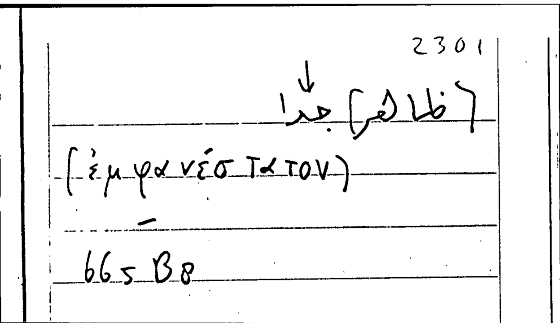 2301
↓
(ظاهر) جدا
(ἐμφανέστατον)
–
665 B8